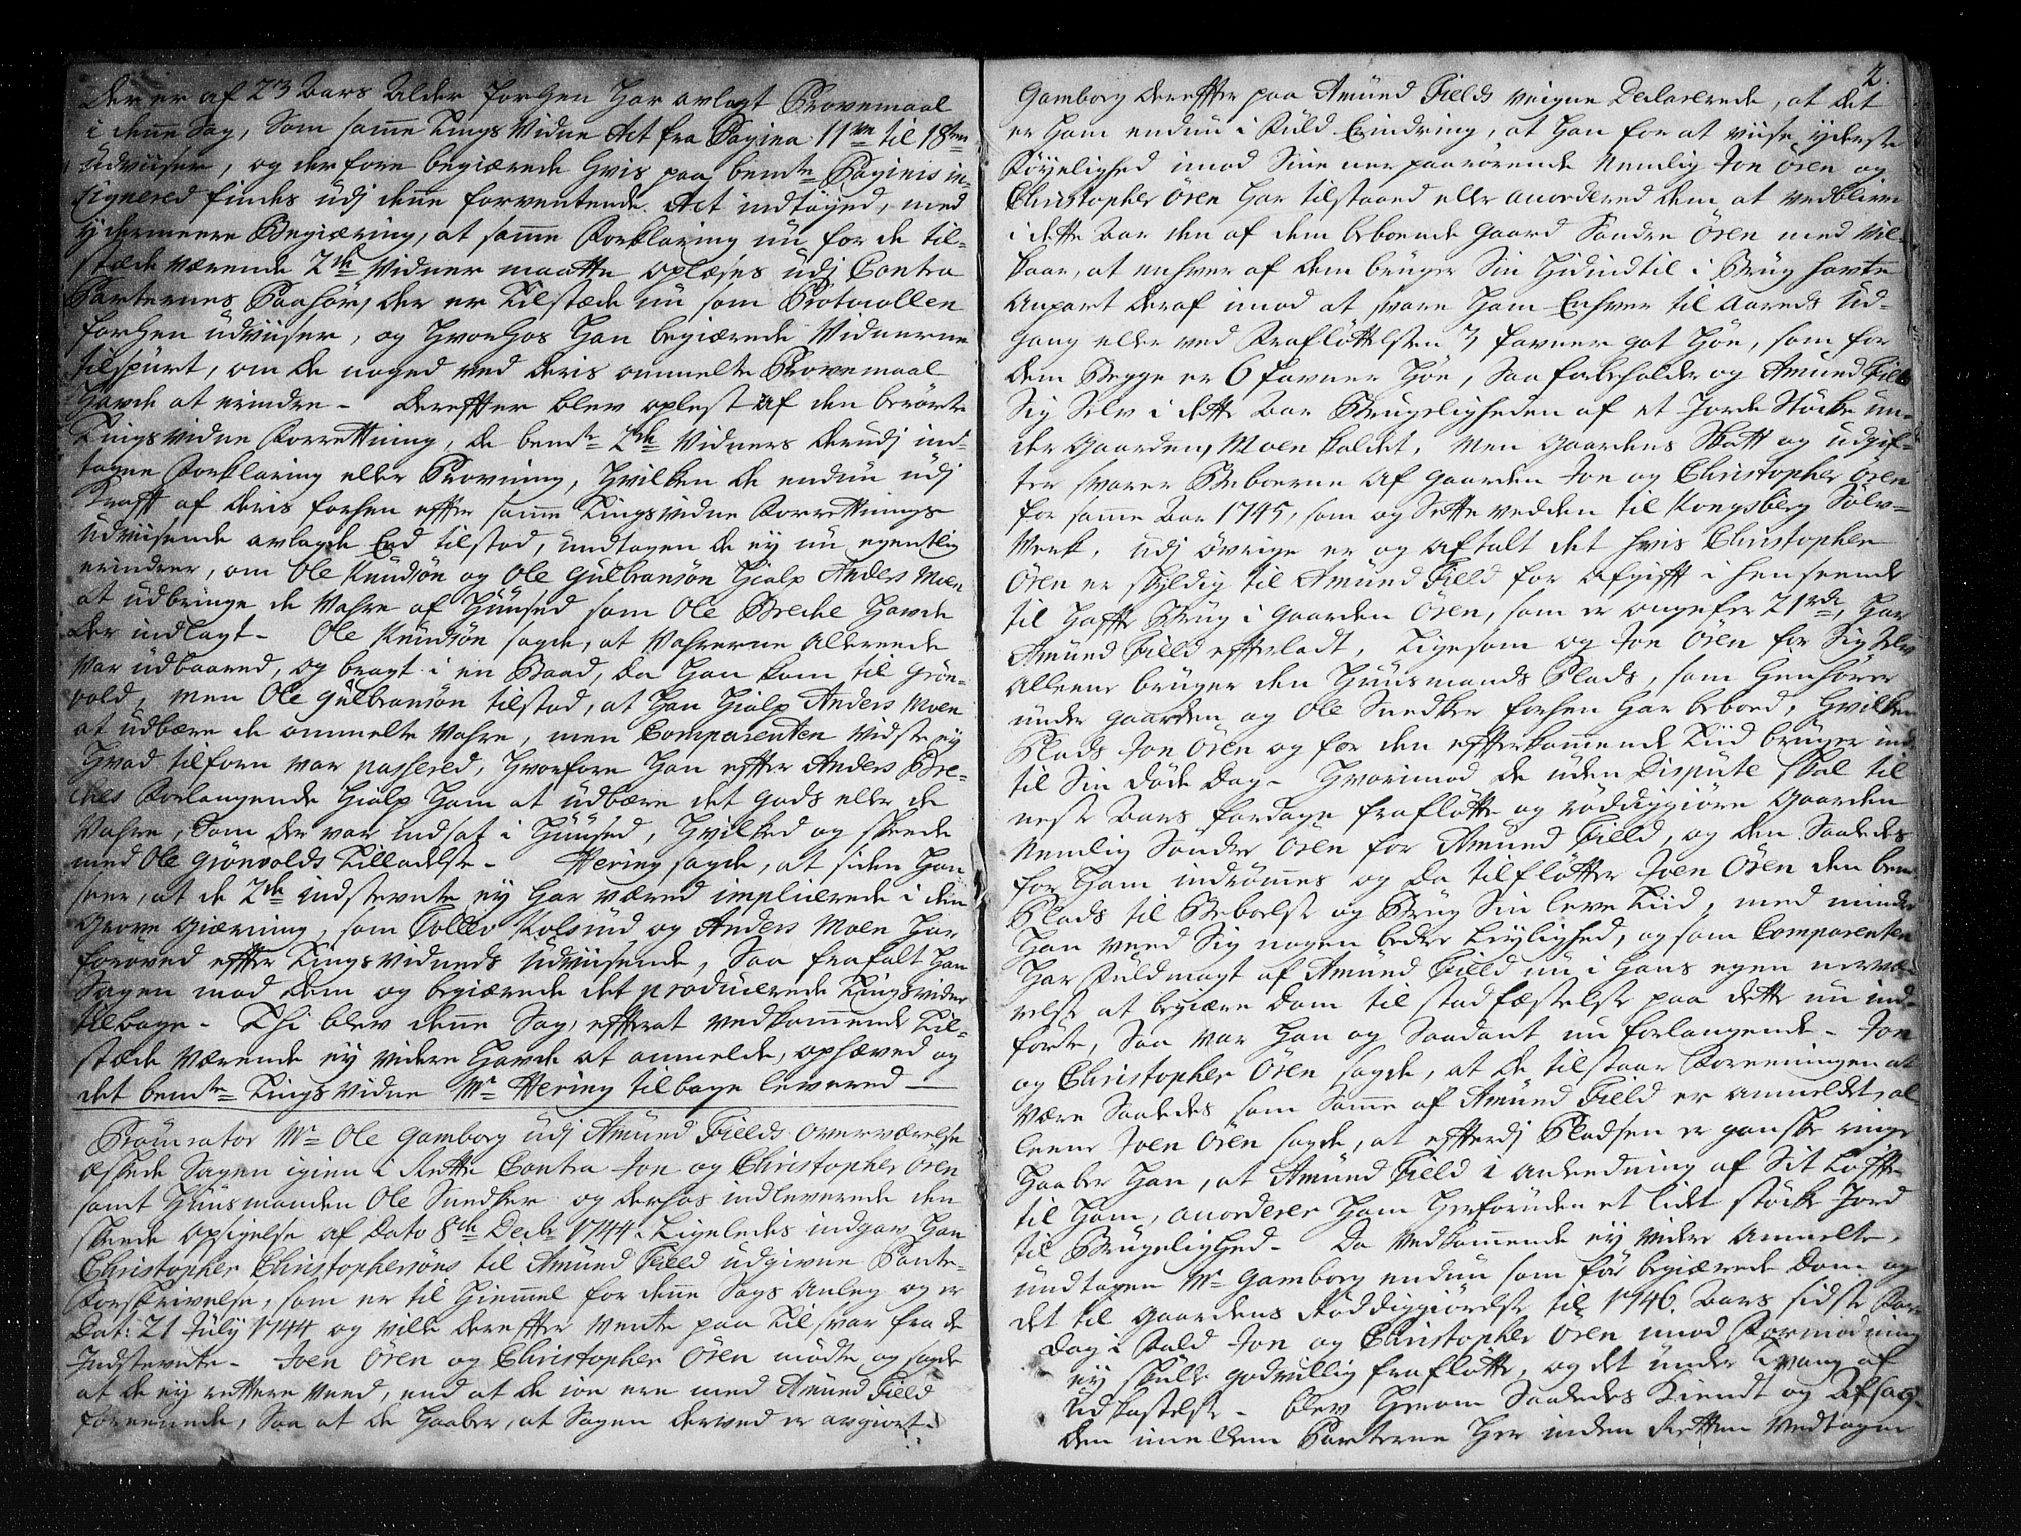 der er af 23 Aars Alder forhen har avlagt Provemaal
i denne Sag, Som samme Tings Vidne Act fra Pagina 11ve til 18ten
Udviiser, og derfore begiærede hvis paa bemte Paginis in-
signered findes udj denne forventende Act indtaged, med
ydermeere Begiæring, at samme Forklaring nu for de til-
stæde værende 2de Vidner maatte oplæses udj Contra
Parternes Paahør, der er Tilstæde nu som Protocollen
forhen udviiser, og hvorhos han begiærede Vidnerne
tilspurt, om de noged ved deris ommelte Provemaal
havde at erindre - Derefter blev oplest af den berørte
Tingsvidne Forrettning, de bemte 2de Vidners derudj ind-
tagne Forklaring eller Provning, hvilken de endnu udj
Krafft af deris forhen effter samme Tingsvidne Forrettnings
Udviisende avlagde Eed tilstod, undtagen de ey nu egentlig
erindrer, om Ole Knudsøn og Ole Gulbransøn hialp Anders Moen
at udbringe de Vahre af Huused som Ole Breche havde
der indlagt - Ole Knudsøn sagde, at Vahrerne allereede
var udbaared, og bragt i en Baad, da han kom til Grøn-
vold, men Ole Gulbransøn tilstod, at han hialp Anders Moen
at udbære de ommelte Vahre, men Comparenten Vidste ey
hvad tilforn var passered, hvorfore han effter Anders Bre-
ches Forlangende hialp ham at udbære det gods eller de
Vahre, som der var indsat i Huused, hvilked og skeede
med Ole Grønvolds Tilladelse - Hering sagde, at siden han
seer, at de 2de indstevnte ey har været implicerede i den
Grove Giærning, som Tollev Kolsrud og Anders Moen har
forøved effter Tingsvidneds Udviisende, Saa frafalt han
Sagen mod dem og begiærede det producerede Tingsvidne
tilbage - Thi blev denne Sag, effterat vedkommende Til-
stæde Værende ey videre havde at anmelde, ophæved og
det bemte Tingsvidne Mr Hering tilbage levered -
Procurator Mr Ole Gamborg udj Amund Fields overværelse
æskede Sagen igien i Rette Contra Jon og Christopher Ören
samt Huusmanden Ole Snedker og derhos indleverede den
skeede opsigelse af Dato 8de Decbr 1744. Ligeledes indgav han
Christopher Christophersöns til Amund Field udgivne Pante-
Forskrivelse, som er til Hiemmel for denne Sags Anleg og er
Dat: 21 July 1744 og ville dereffter vente paa Tilsvar fra de
Indstevnte - Joen Ören og Christopher Ören mødte og sagde
at de ey rettere veed, end at de joe ere med Amund Field
foreenede, Saa at de haaber, at Sagen derved er avgiort -
2.
Gamborg dereffter paa Amund Fields veigne Declarerede, at det
er ham endnu i Fuld Erindring, at han for at viise yderste
Føyelighed imod Sine nerpaarørende Nemlig Jon Ören og
Christopher Ören har tilstaaed eller anordered dem at vedblive
i dette Aar den af dem beboende gaard Söndre Ören med Vil-
kaar, at enhver af dem bruger Sin hidindtil i Brug havte
Anpart deraf imod at svare ham Enhver til Aareds Ud-
gang eller ved Frafløttelsen 3 favner got höe, som for
dem Begge er 6 favner höe, Saa forbeholder og Amund Field
Sig Selv i dette Aar Brugeligheden af et Jorde Støcke un-
der Gaarden, Moen kaldet, Men Gaardens Skatt og Udgif-
ter svarer Beboerne af Gaarden Jon og Christopher Ören
for samme Aar 1745, som og Sætte vedden til Kongsberg Sölv-
Verk, udj övrige er og aftalt det hvis Christopher
Ören er skyldig til Amund Field for Afgifft i henseende
til haffte Brug i Gaarden Ören, som er ongefer 21 rdr, har
Amund Field effterladt, Ligesom og Jon Ören for Sig Selv
Alleene bruger den Huusmands Plads, som henhører
under gaarden og Ole Snedker forhen har beboed, hvilken
Plads Jon Ören og for den effterkommende Tiid bruger ind
til Sin døde Dag - Hvorimod de uden Dispute skal til
nest Aars fardage frafløtte og røddiggiøre Gaarden
Nemlig Söndre Ören for Amund Field, og den Saaledes
for ham indrømmes og da tilfløtter Joen Ören den bemte
Plads til Beboelse og Brug Sin leve Tiid, med mindre
han veed Sig nogen bedre Leylighed, og som Comparenten
har Fuldmagt af Amund Field nu i hans egen nervæ-
relse at begiære Dom til stadfæstelse paa dette nu ind-
førte, Saa var han og Saadant nu forlangende - Jon
og Christopher Ören sagde, at de tilstaar Foreeningen at
være Saaledes som Samme af Amund Field er anmeldet, al-
leene Joen Ören sagde, at efferdj Pladsen er ganske ringe
haaber han, at Amund Field i anledning af Sit Løffte
til ham, anorderer ham herforuden et lidet støcke Jord
til Brugelighed - Da Vedkommende ey videre Anmelte,
undtagen Mr Gamborg endnu som før begiærede Dom og
det til Gaardens Røddiggiørelse til 1746. Aars sidste Far-
dag i Fald Jon og Christopher Ören imod Formodning
ey skulle godvillig frafløtte, og det under Tvang af
Udkastelse - blev herom Saaledes Kiendt og Afsagt
Den imellem Parterne her inden Retten Vedtagne